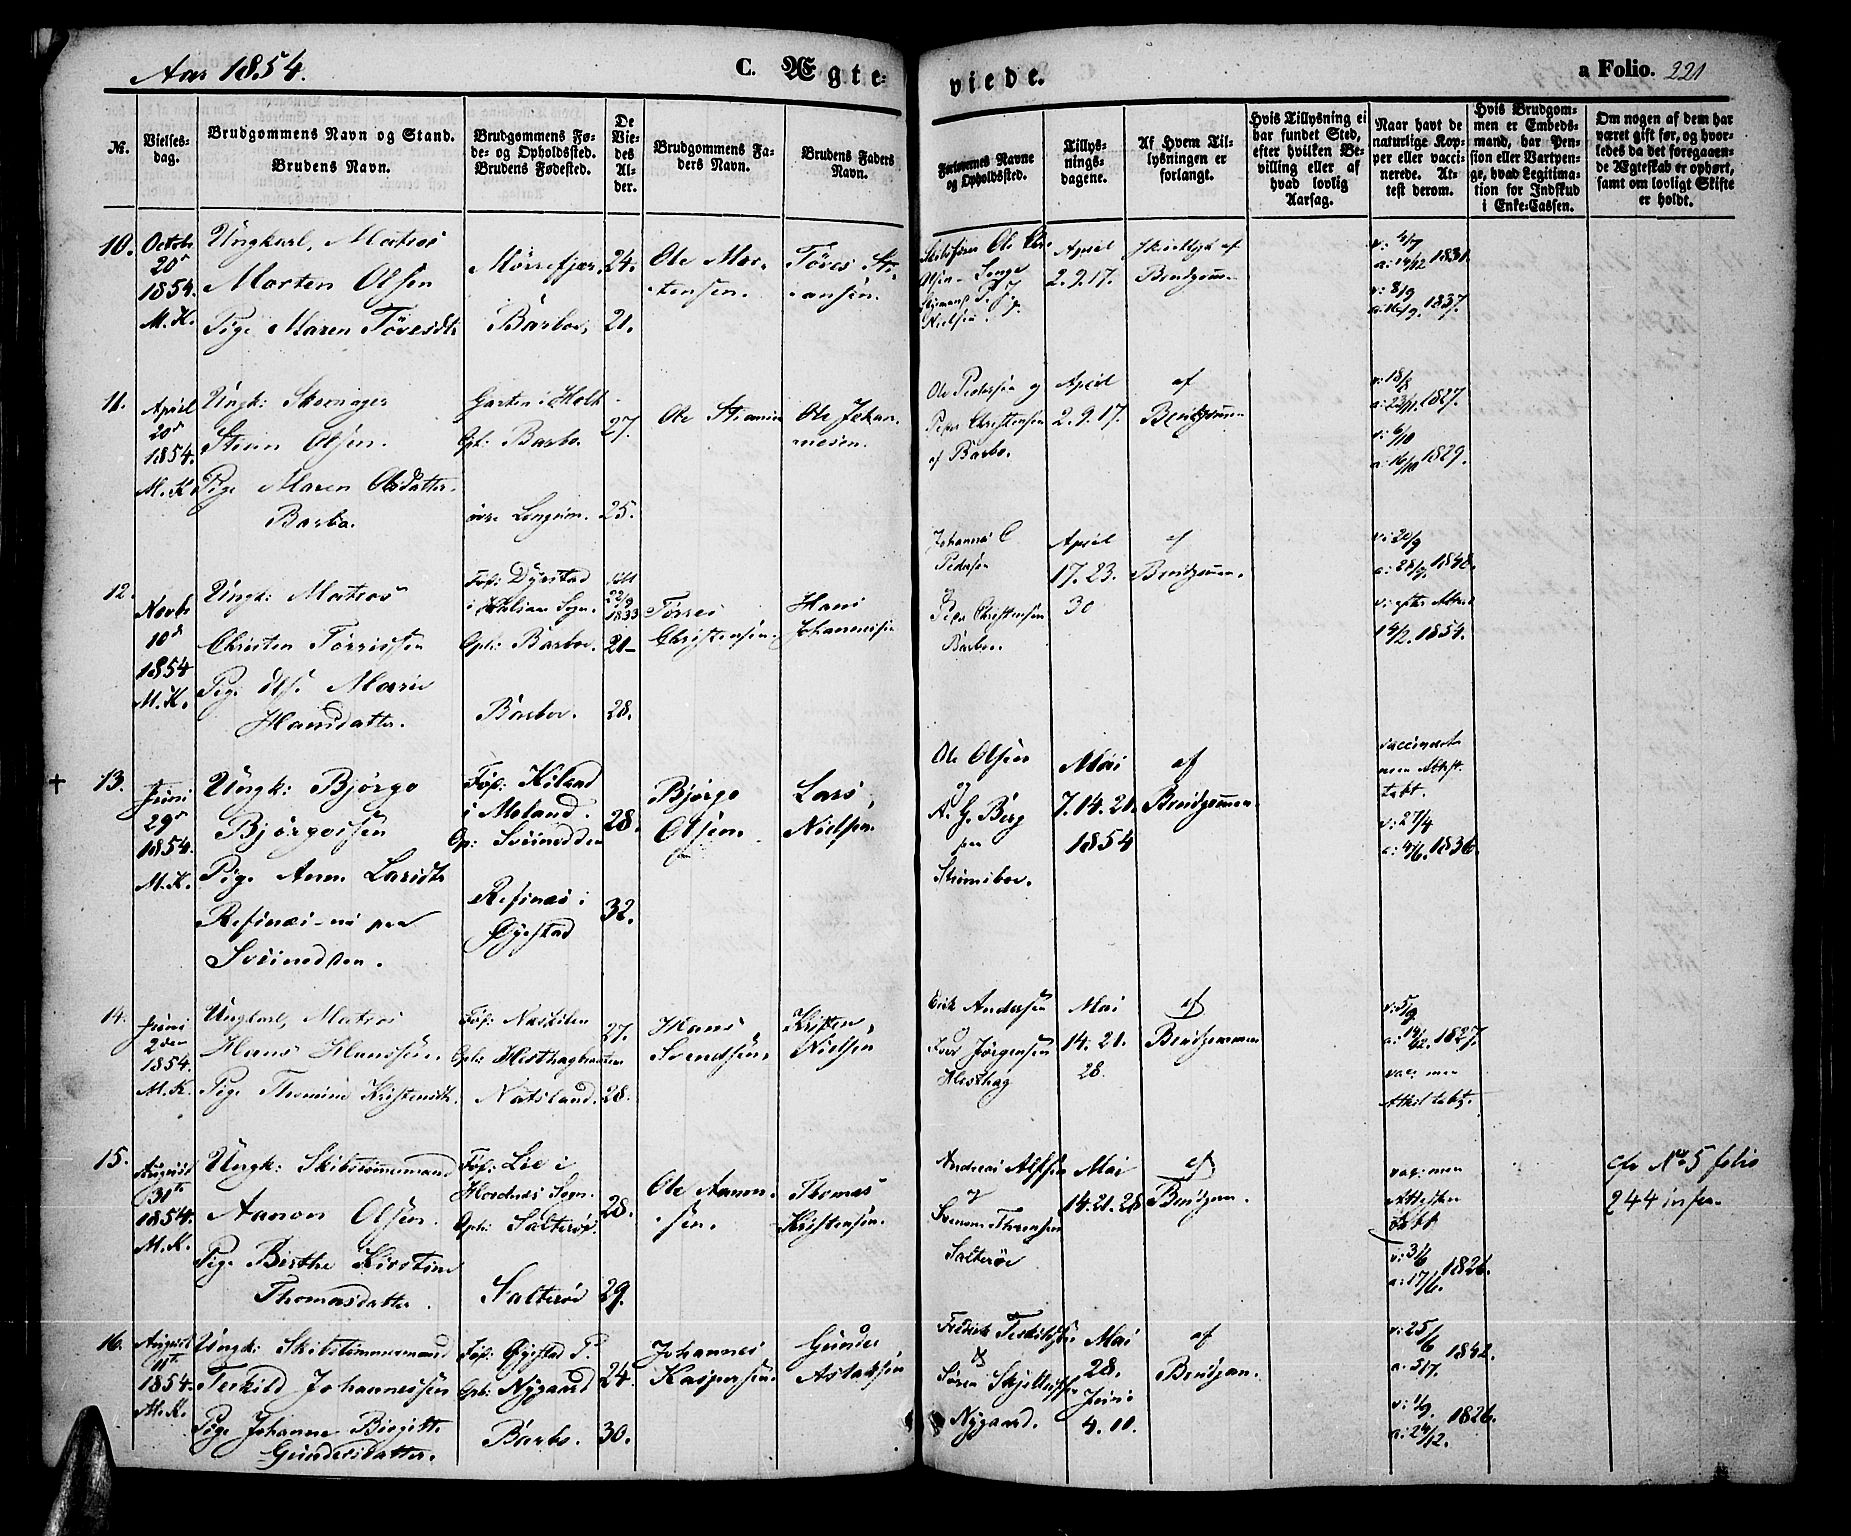 Aar 1854.
C. Ægteviede.
a Folio. 221
№.
Vielsesdag.
Brudgommens Navn og Stand.
Brudens Navn.
Brudgommens Føde- og Opholdssted.
Brudens Fødested.
De Viedes Alder.
Brudgommens Faders Navn.
Brudens Faders Navn.
Forlovernes Navne og Opholdssted.
Tillysningsdagene.
Af Hvem Tillysningen er forlangt.
Hvis Tillysning ei har fundet Sted, efter hvilken Bevilling eller af hvad lovlig Aarsag.
Naar havt de naturlige Kopper eller vaccinerede. Attest derom.
Hvis Brudgommen er Embedsmand, har Pension eller Vartpenge, hvad Legitimation for Indskud i Enke-Cassen.
Om nogen af dem har været gift før, og hvorledes da det foregaaende Ægteskab er ophørt, samt om lovligt Skifte er holdt.
10.
Octobr
20de
1854.
M. K.
Ungkarl, Matros
Morten Olsen
Pige Maren Tøresdtr
Mørrefjær
Barboe
24.
21.
Ole Mortensen.
Tøres
April
2. 9. 17.
Brudgommen
1831.
1837.
11.
April
20de
1854.
M. K.
Ungk:
Olsen.
Pige Maren Olsdatter.
Barbo.
i Holt
Oph: Barbo.
øvre Længum.
27.
25.
Ole
Ole Johannesen.
Ole Pedersen og
Peder Christensen
af Barbo.
April
2. 9. 17.
af
Brudgommen
1827.
v: 6/10
a: 16/10 1829.
12.
Novbr
10de
1854
M. K.
Ungk: Matros
Christen Tørrissen
Pige Else Marie
Hansdatter.
Fød: Dyrstad
Sogn.
Oph: Barboe.
Barboe.
1833
21
28.
Tørres
Christensen
Hans
Johannesen
Johannes C
Pedersen
og
Peder Christensen
Barboe.
April
17. 23.
30
af
Brudgommen.
v: 20/9
a: 28/9 1848.
v: efter Attest
14/2. 1854.
13.
Juni
29de
1854.
M. K.
Ungk: Bjørge
Bjørgessen
Pige Anne Larsdtr
Refsnæs
Fød: Kilsad
i Moland.
Op: Sviinodden
Refsnæs i
Øyestad
28.
32.
Bjørge
Olsen.
Lars
Nielsen.
Ole Olsen
og
A. G. Berg
paa
Strømsboe.
Mai
7. 14. 21.
1854
af
Brudgommen
vaccineret
men Attest
tabt.
v: 27/4
a: 4/6. 1836.
14.
Juni
2den
1854.
M. K.
Ungkarl, Matros
Hans Hanssen.
Pige Thomine Kristensdtr.
Fød: Næskilen
Oph: Hesthagbraaten
Natsland.
27.
28.
Hans
Svendsen.
Kristen
Nielsen
Erik Andersen
Jørgensen
Hesthag
Mai
14. 21.
28.
af
Brudgommen
v: 5/9
1827.
vac: men
Attest tabt.
15.
August
1854.
M. K.
Ungk: Skibstømmermand
Aanon Olsen.
Pige Birthe Kirstine
Thomasdatter.
Fød: Lie i
Sogn.
Oph: Salterøe.
Salterøe
28.
29.
Ole Aanonsen.
Thomas
Kristensen.
Andreas Alfsen
og
Salterøe
Mai
14. 21. 28
af
Brudgom.
vac: men
Attesten
tabt
v: 3/6
a: 17/6. 1826.
cfr No 5 folio
244 infra.
16.
August
11te
1854.
M. K.
Ungk: Skibstømmermand
Terkild Johannessen
Pige Johanne Birgitte
Gundersdatter.
Fød: Øyestad P.
Oph: Nygaard
Barbo.
24.
30.
Johannes
Kaspersen.
Gunder
Aslaksen
Fredrik Terkildsen
&
Søren
Nygaard.
Mai
28.
Juni
4. 11.
af
Brudgom.
v: 25/6
a: 3/7. 1842.
1826.